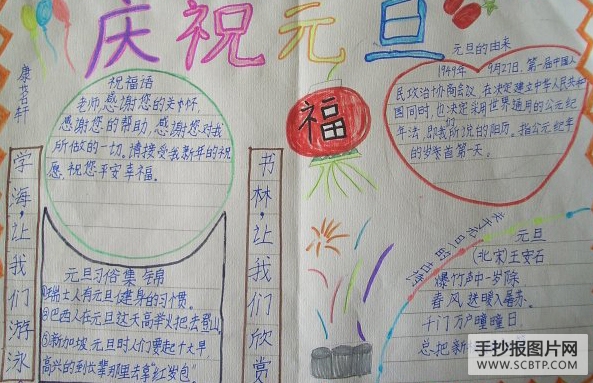 庆祝元旦
康茗轩
祝福语
老师,感谢您的关怀,
感谢您的帮助,感谢您对我
所做的一切。请接受我新年的祝
愿,祝您平安幸福。
学海,让我们游泳
书林,让我们欣赏
元旦习俗集锦
瑞士人有元旦健身的习惯。
巴西人在元旦这天高举火把去登山。
③新加坡元旦时人们要起个大早,
高兴的到长辈那里去拿"红岁包"
福
元旦的由来
1949年 9月27日,第一届中国人
民政治协商会议,在决定建立中华人民共和
国同时,也决定采用世界通用的公元纪
年法,即我们所说的阳历。指公元纪年
的岁首第一天。
关于元旦的古诗
元旦
(北宋)王安石
爆竹声中一岁除
春风送暖入屠苏。
千门万户曈曈日
总把新
手抄报图片网
WWW.SCBTP.COM